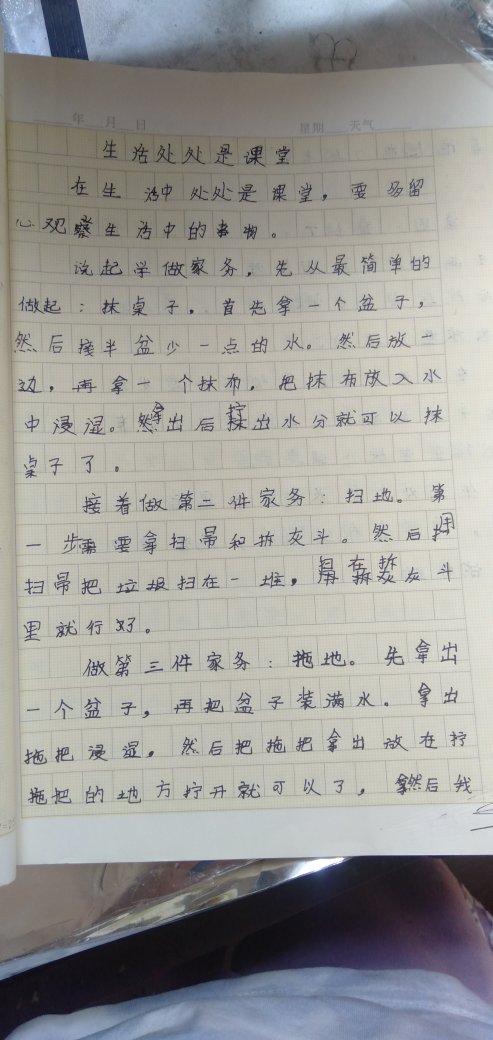 年 月 日 星期 天气
生活处处是课堂
在生活中处处是课堂，要多留
心观察生活中的事物。
说起学做家务，先从最简单的
做起：抹桌子。首先拿一个盆子，
然后接半盆少一点的水。然后放一
边，再拿一个抹布，把抹布放入水
中浸湿。拿出后拧出水分就可以抹
桌子了。
接着做第二件家务：扫地。第
一步需要拿扫帚和拆灰斗。然后用
扫帚把垃圾扫在一堆，扫在拆灰斗
里就行了。
做第三件家务：拖地。先拿出
一个盆子，再把盆子装满水。拿出
拖把浸湿，然后把拖把拿出放在拧
拖把的地方拧开就可以了，然后我